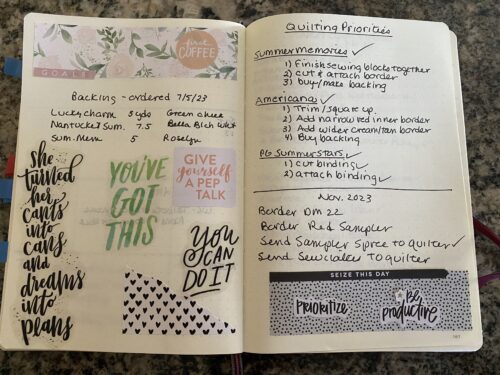 first
COFFEE
GOALS
Backing - ordered 7/5/23
Lucky charm 3 yds Green check
Nantucket Sum. 7.5 Bella Blch Wht
Sum. Mem. 5 Roselyn
she
turned
her
can'ts
into
cans
and
dreams
into
plans
YOU'VE
GOT
THIS
GIVE
yourself
A PEP
TALK
YOU
CAN
DO IT
Quilting Priorities
Summer memories ✓
1) Finish sewing blocks together
2) cut & attach border
3) buy/make backing
Americana ✓
1) Trim/square up
2) Add narrow red inner border
3) Add wider cream/tan border
4) Buy backing
PG Summer Stars ✓
1) cut binding ✓
2) attach binding ✓
Nov. 2023
Border Dm 22
Border Red Sampler
Send Sampler Spree to quilter ✓
Send Sewcialites to quilter
SEIZE THIS DAY
PRIORITIZE
be
productive